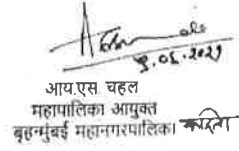 ९.०६.२०२१
आय.एस चहल
महापालिका आयुक्त
बृहन्मुंबई महानगरपालिका करिता